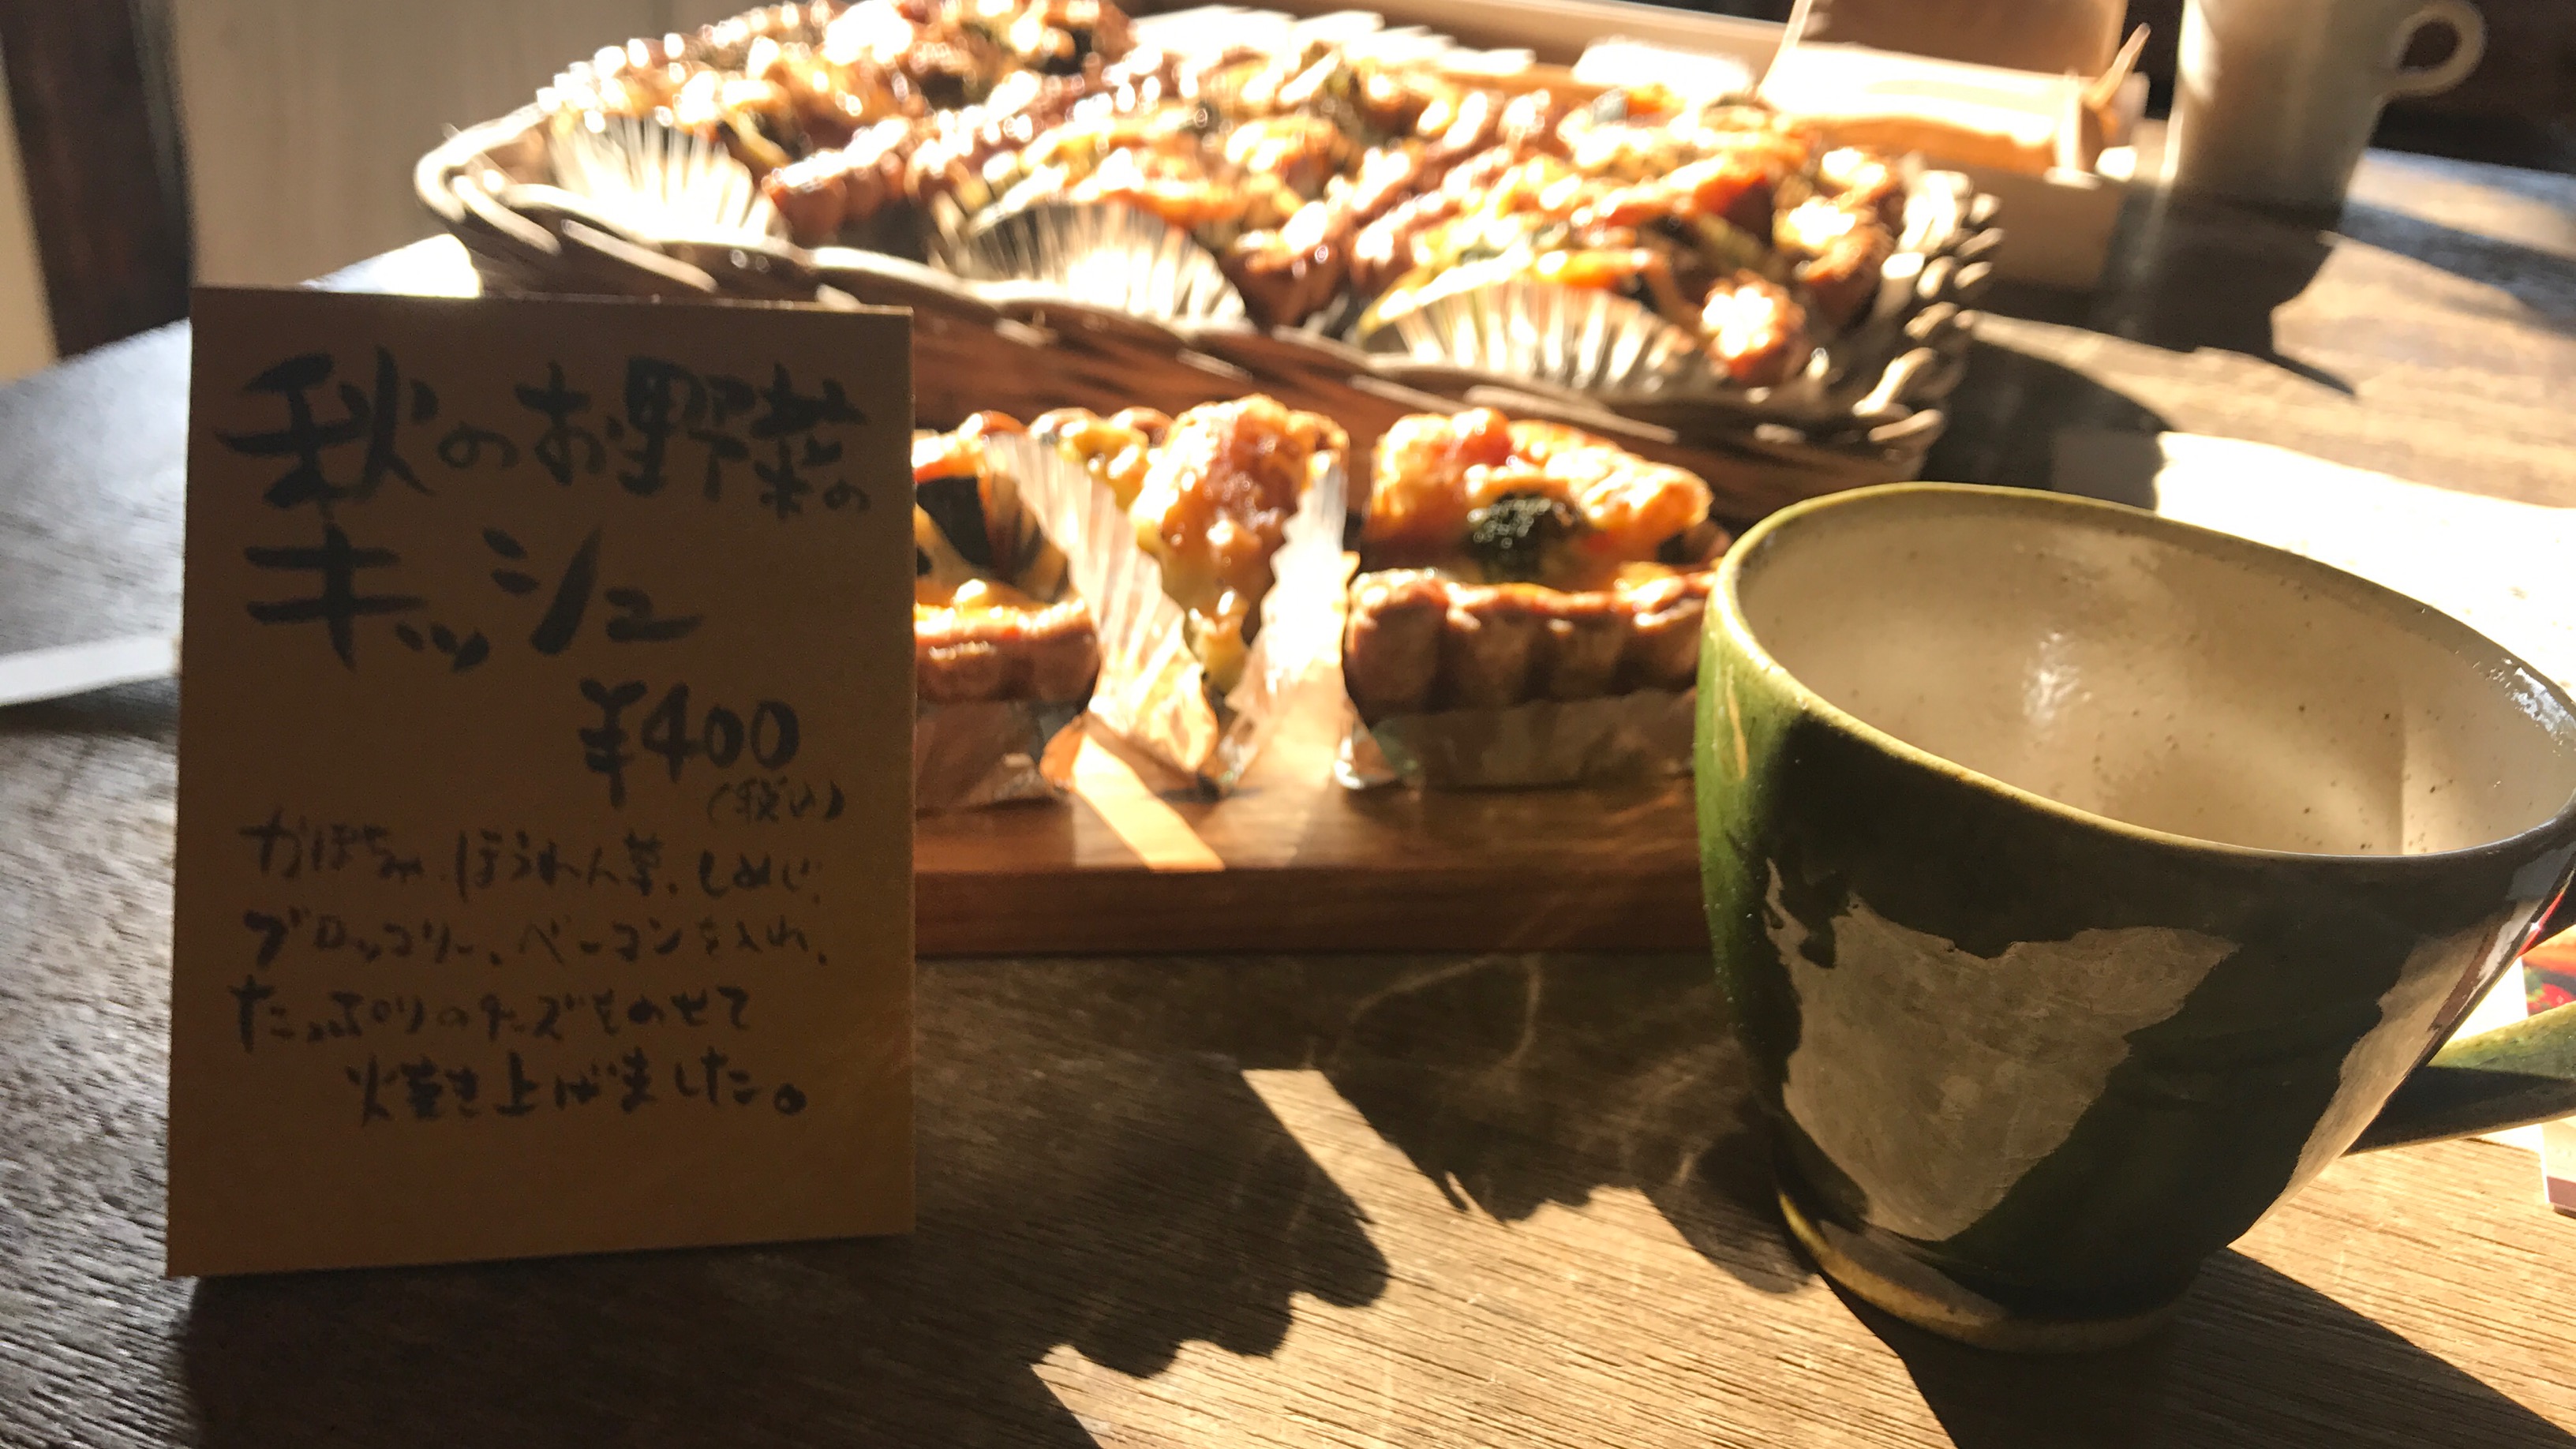 秋のお野菜の
キッシュ
¥400
(税込)
かぼちゃ、ほうれん草、しめじ、
ブロッコリー、ベーコンを入れ、
たっぷりのチーズをのせて
焼き上げました。